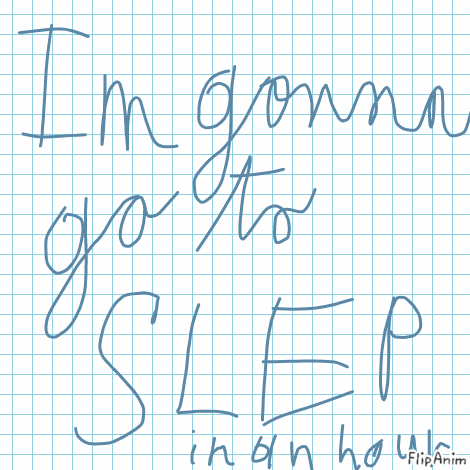 Im gonna
go to
SLEP
in an hour
FlipAnim